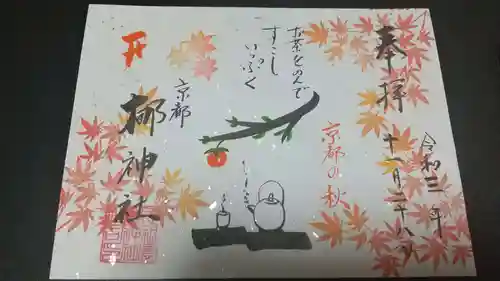 奉拝
令和三年
十一月二十八日
京都の秋
お茶をのんで
すこし
いっぷく
京都
梛神社